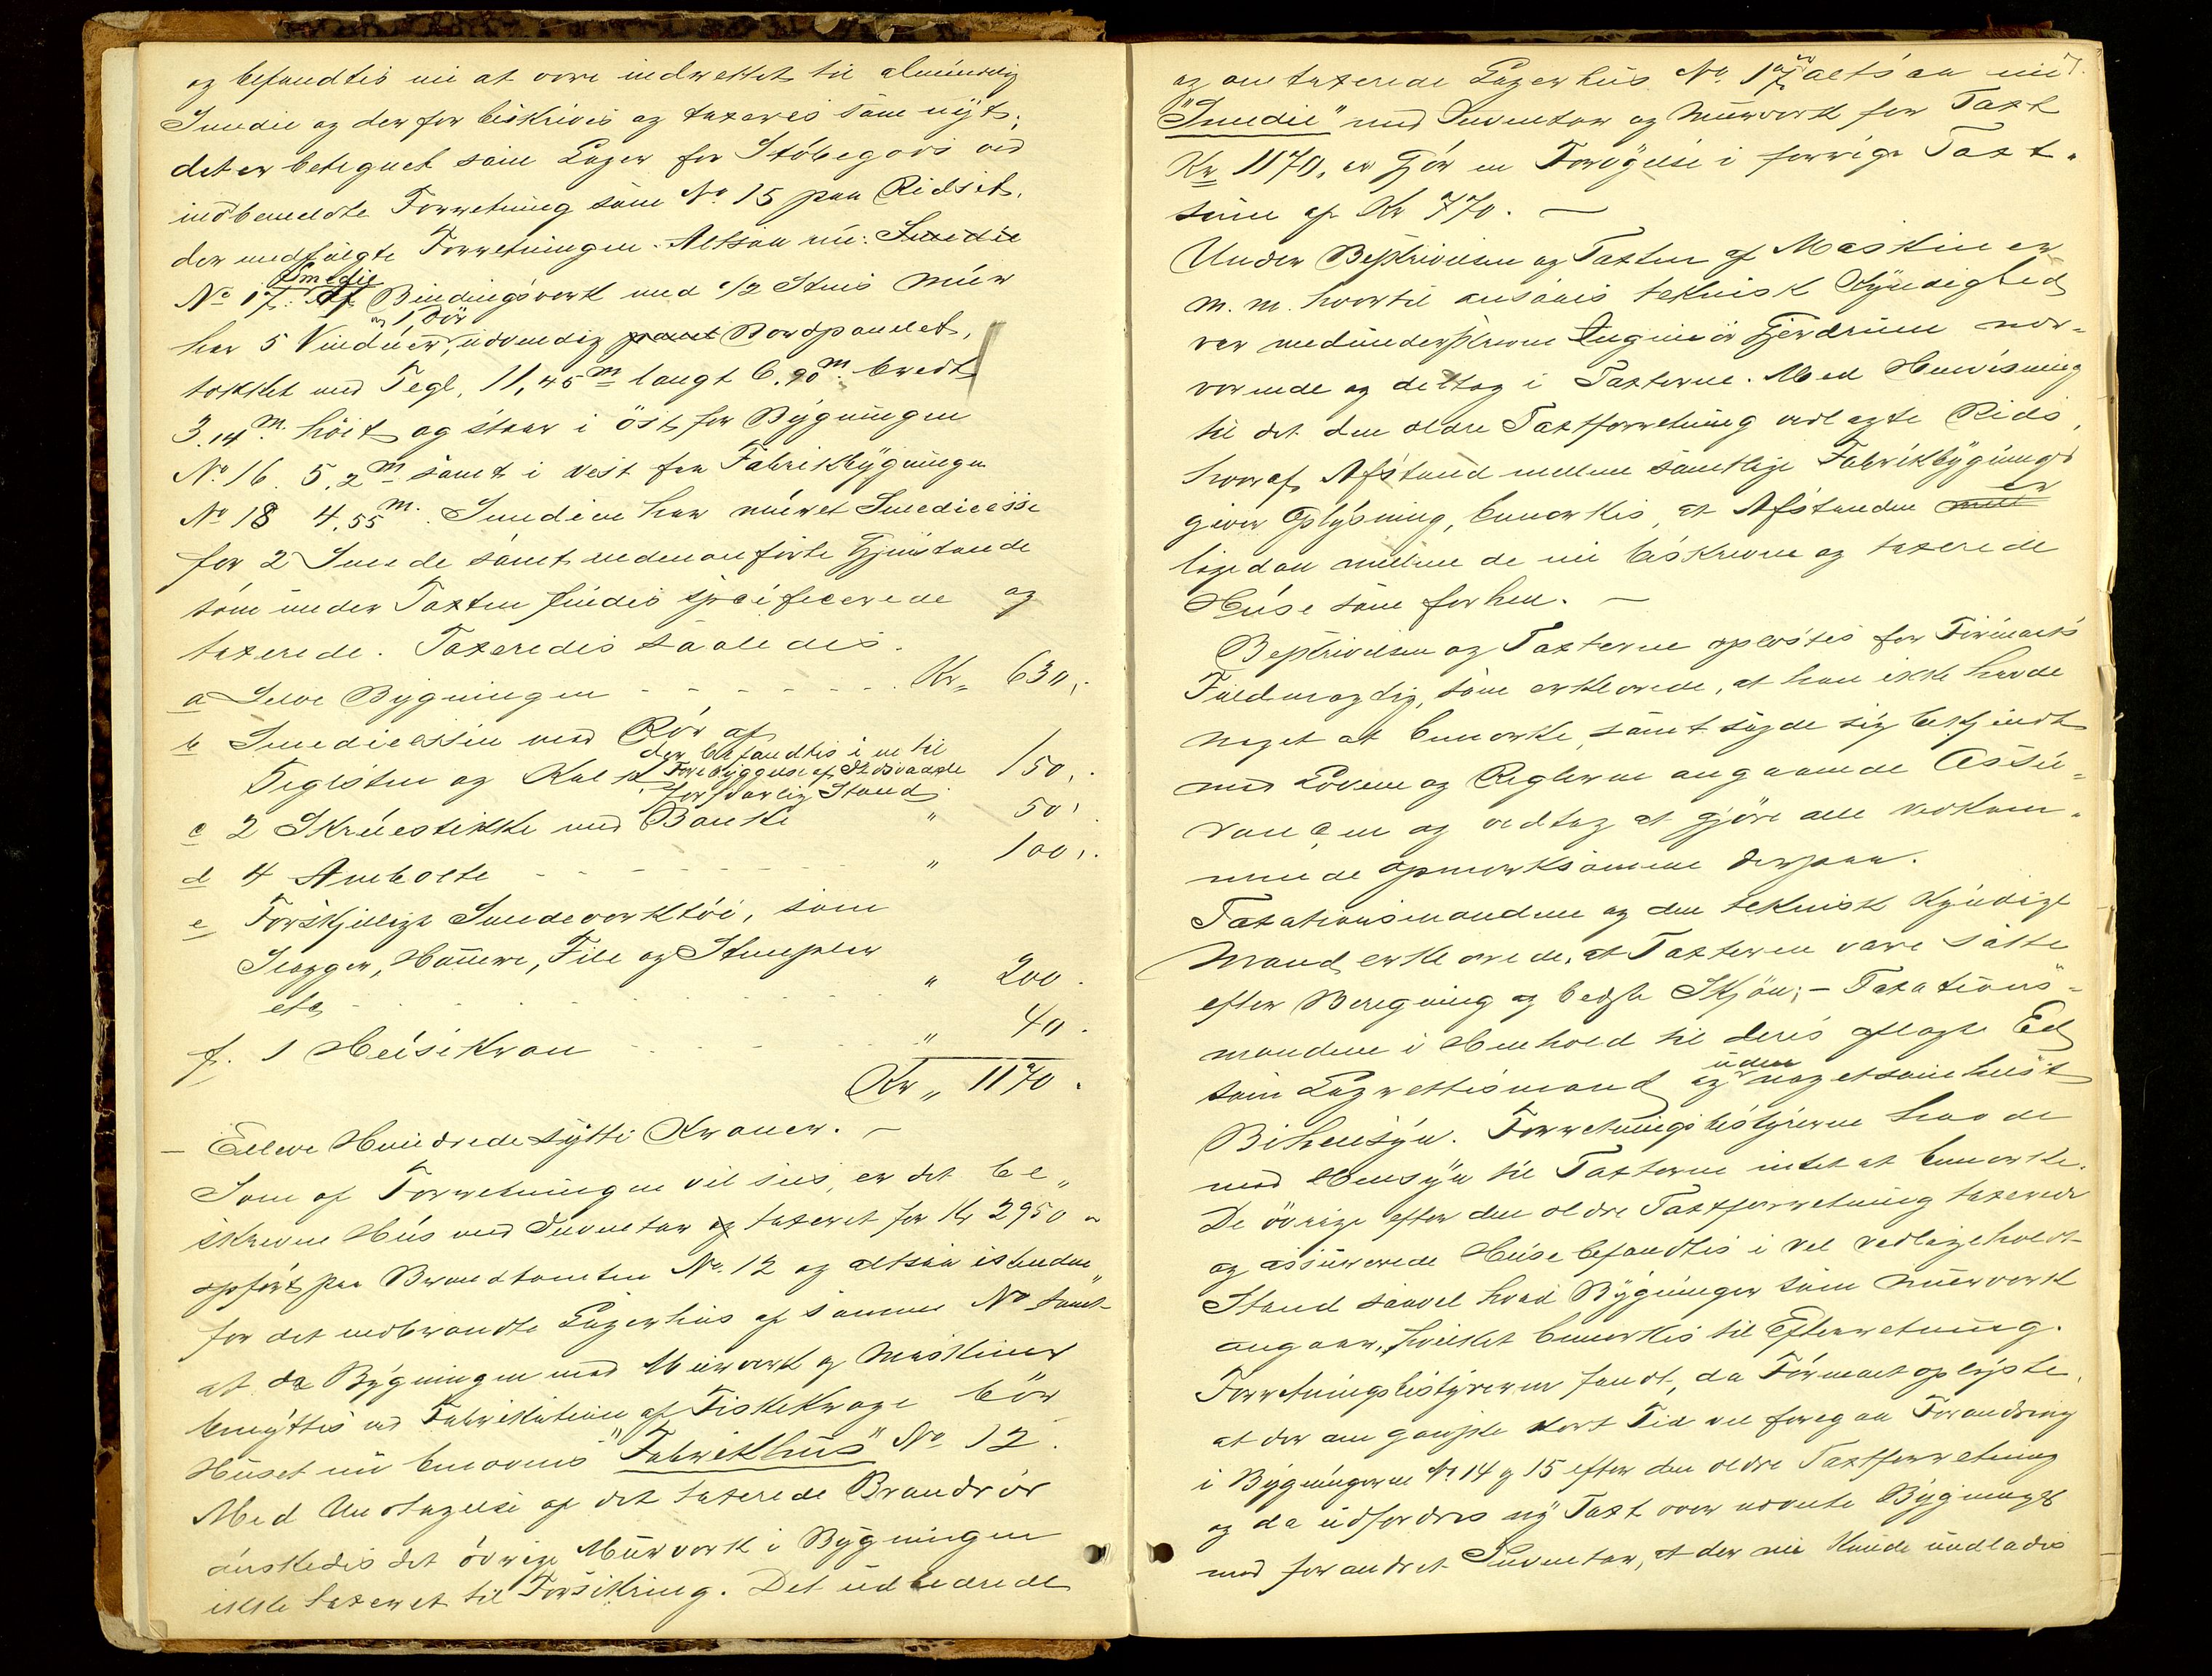 og befandtes nu at være indrettet til almindelig
Smedie og derfor beskrives og taxeres som nyt,
det er betegnet som Lager for Støbegods ved
indbemeldte Forretning som No 15 paa Ridset,
der medfulgte Forretningen. Altsaa nu: Smedie
Smedie
No 17. Af Bindingsverk med 1/2 Stens Muur
og 1 Dör
har 5 Vinduer, udvendig Bordpanelet,
tækket med Tegl, 11,45 m langt 6,90 m. bredt
3.14 m. höit og staar i öst for Bygningen
No 16. 5,2 m samt i vest fra Fabrikbygningen
No 18 4,55 m. Smedien har muret Smedieesse
for 2 Smede samt nedenanførte Gjenstande
som under Taxten findes specificerede og
taxerede. Taxeredes saaledes.
a Selve Bygningen - - - - - - - Kr. 630,-
b Smedieessen med Rör af
der befandtes i en til
Teglsten og Kalk Forebyggelse af Ildsvaade 150,.
forsvarlig Stand
c 2 Skruestikke med Bænke " 50,
d 4 Ambolte - - - - - - - " 100,.
e Forskjellige Smedeverktöi, som
Slægger, Hamre, File og Stempler
etc - - - - - - - " 200.
f. 1 Heisekran - - - - - " 40.
Kr „ 1170.
— Elleve Hundrede sytti Kroner. —
Som af Forretningen vil sees, er det be„
skrevne Hus med Inventar og taxeret for Kr 2950 „
opfört paa Brandtomten No. 12 og altsaa isteden„
for det nedbrændte Lagerhus af samme No samt
at da Bygningen med Murverk og Maskiner
benyttes ved Fabrikation af Fiskekroge bör
Huset nu benævnes "Fabrikhus" No 12.
Med Undtagelse af det taxerede Brandrör
önskedes det övrige Murverk i Bygningen
ikke taxeret til Forsikring. Det udbedrede
7.
og omtaxerede Lagerhus No. 17 altsaa nu
"Smedie" med Inventar og Murverk for Taxt
Kr 1170, er Gjör en Forögelse i forrige Taxt-
sum af Kr 770. —
Under Beskrivelsen og Taxten af Maskiner
m. m. hvortil ansaaes teknisk Kyndighed
var medunderskrevne Ingeniör Gjerdrum nær-
værende og deltog i Taxterne. Med Henvisning
til det den ældre Taxtforretning vedlagte Rids,
hvoraf Afstand mellem samtlige Fabrikbygninger
er
giver Oplysning, bemærkes, at Afstanden
ligedan mellem de nu beskrevne og taxerede
Huse som forhen. —
Beskrivelsen og Taxterne oplæstes for Firmaets
Fuldmægtig, som erklærede, at han ikke havde
noget at bemærke, samt sagde sig bekjendt
med Loven og Reglerne angaaende Assu-
rancen og vedtog at gjöre alle vedkom-
mende opmærksomme derpaa.
Taxationsmændene og den teknisk kyndige
Mand erklærede, at Taxterne vare satte
efter Beregning og bedste Skjön; - Taxations-
mændene i Henhold til deres aflagte Ed
uden
som Lagrettesmænd og nogetsomhelst
Bihensyn. Forretningsbestyreren havde
med Hensyn til Taxterne intet at bemærke.
De övrige efter den ældre Taxtforretning taxerede
og assurerede Huse befandtes i vel vedligeholdt
Stand saavel hvad Bygninger som Murverk
angaar, hvilket bemærkes til Efterretning.
Forretningsbestyreren fandt, da Firmaet oplyste,
at der om ganske kort Tid vil foregaa Forandring
i Bygningerne No 14 og 15 efter den ældre Taxtforretning
og da udfordres ny Taxt over nævnte Bygninger
med forandret Inventar, at der nu kunde undlades